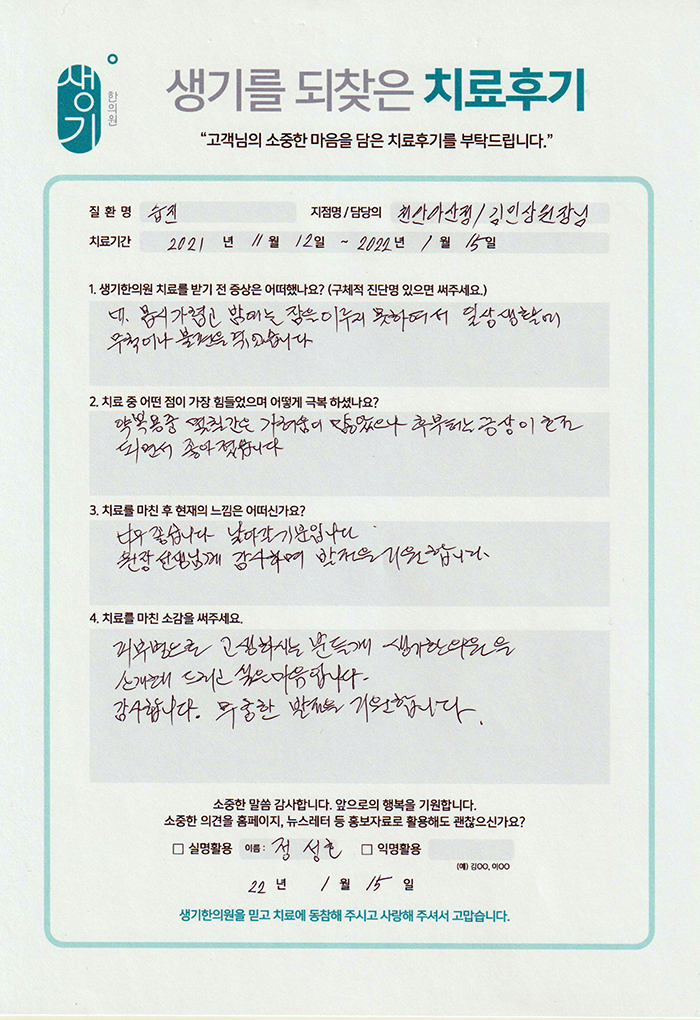 생기
한의원
생기를 되찾은 치료후기
“고객님의 소중한 마음을 담은 치료후기를 부탁드립니다.”
질 환 명 습진 지점명 / 담당의 천안아산점 / 김민상원장님
치료기간 2021 년 11 월 12 일 ~ 2022 년 1 월 15 일
1. 생기한의원 치료를 받기 전 증상은 어떠했나요? (구체적 진단명 있으면 써주세요.)
네. 몹시 가렵고 밤에는 잠을 이루지 못하여서 일상생활에
무척이나 불편을
2. 치료 중 어떤 점이 가장 힘들었으며 어떻게 극복 하셨나요?
약복용중 몇칠간은 가려움이 많았으나 후부터는 증상이 호전
되면서 좋아졌습니다
3. 치료를 마친 후 현재의 느낌은 어떠신가요?
너무 좋습니다 날아갈기분입니다
원장선생님께 감사하며 발전을 기원합니다.
4. 치료를 마친 소감을 써주세요.
피부병으로 고생하시는 분들에게 생기한의원을
소개해 드리고 싶은마음입니다.
감사합니다. 무궁한 발전을 기원합니다.
소중한 말씀 감사합니다. 앞으로의 행복을 기원합니다.
소중한 의견을 홈페이지, 뉴스레터 등 홍보자료로 활용해도 괜찮으신가요?
□ 실명활용 이름 : 정성훈 □ 익명활용
(예) 김OO, 이OO
22 년 1 월 15 일
생기한의원을 믿고 치료에 동참해 주시고 사랑해 주셔서 고맙습니다.